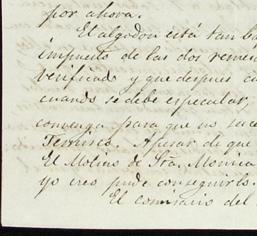 por ahora.
El algodon está tan ba
impuesto de las dos reme
verificado y que despues c
cuando se debe especular,
convenga para que no suce
Terrusco. Apesar de que
El Molino de Sta. Monica
yo creo pude conseguirlo.
El comisario del